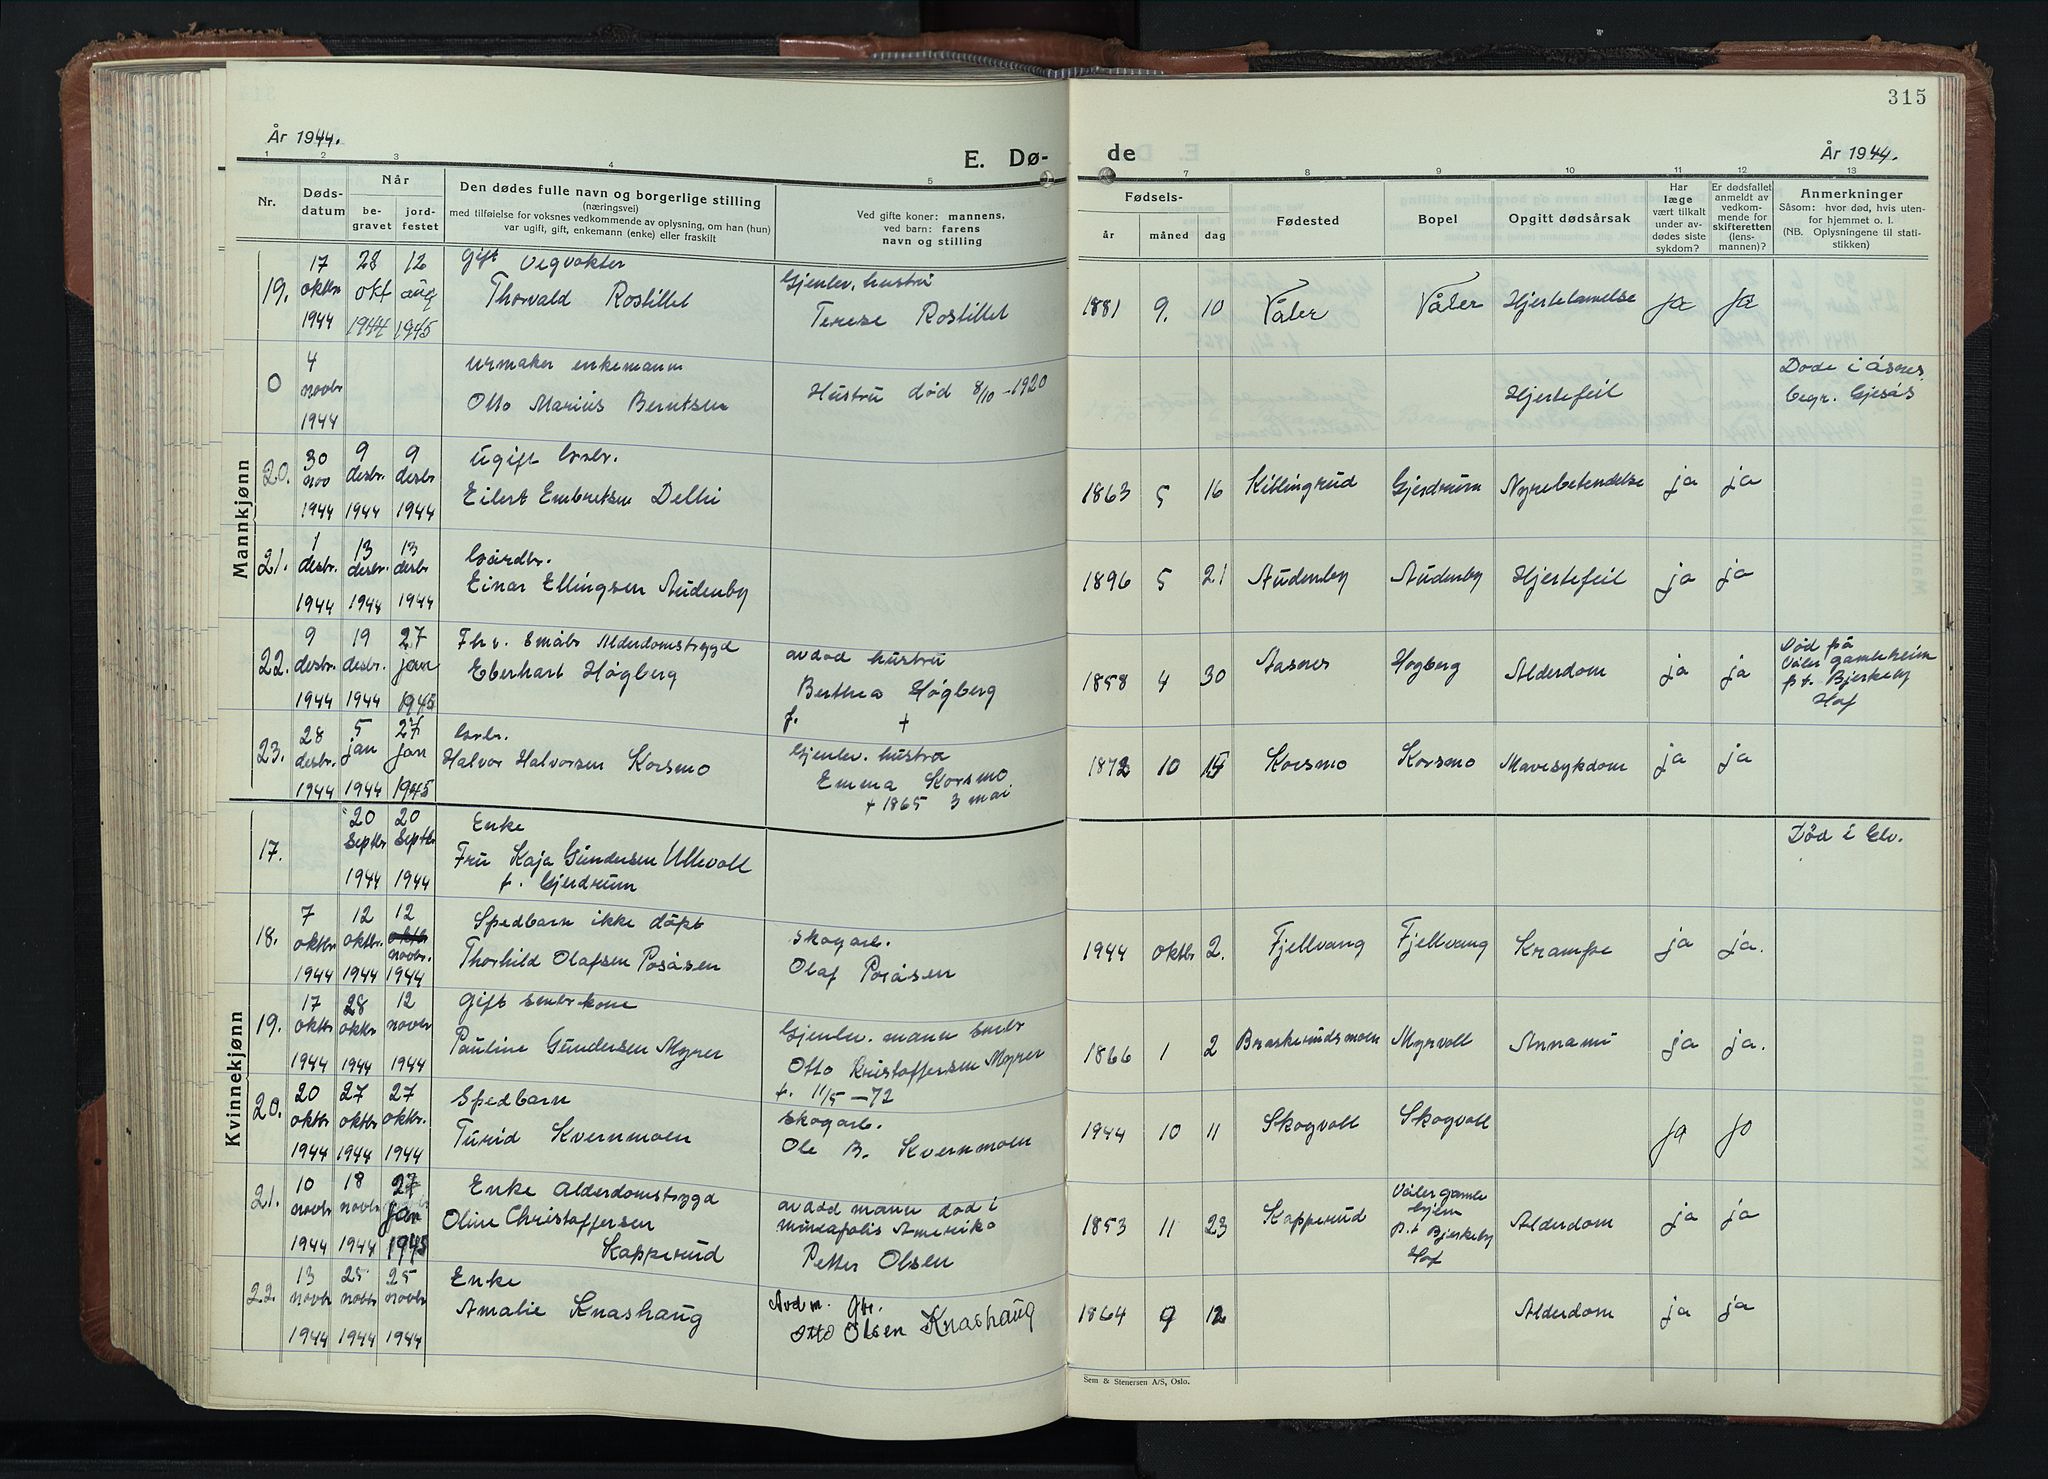 315
År 1944.
E. Dø-
de
År 1944.
1 2 3 4 5 7 8 9 10 11 12 13
Nr.
Døds-
datum
Når
be-
gravet
jord-
festet
Den dødes fulle navn og borgerlige stilling
(næringsvei)
med tilføielse for voksnes vedkommende av oplysning, om han (hun)
var ugift, gift, enkemann (enke) eller fraskilt
Ved gifte koner: mannens,
ved barn: farens
navn og stilling
Fødsels-
år
måned
dag
Fødested
Bopel
Opgitt dødsårsak
Har
læge
vært tilkalt
under av-
dødes siste
sykdom?
Er dødsfallet
anmeldt av
vedkom-
mende for
skifteretten
(lens-
mannen)?
Anmerkninger
Såsom: hvor død, hvis uten-
for hjemmet o. l.
(NB. Oplysningene til stati-
stikken)
Mannkjønn
19.
17 oktbr 1944
28 okt 1944
12 aug 1945
Gift Vegvokter
Thorvald Rostillet
Gjenlev. hustru
Terese Rostillet
1881 9. 10 Våler Våler Hjertelamelse ja ja
0
4 novbr 1944
Urmaker enkemann
Otto Marius Berntsen
Hustru død 8/10 -1920
Hjertefeil
Døde i Åsnes
begr. Gjesås
20.
30 nov 1944
9 desbr. 1944
9 desbr 1944
Ugift
Eilert Embretsen Delhi
1863 5 16 Kiblingrud Gjerdrum Nyrebetendelse ja ja
21.
1 desbr. 1944
13 desbr. 1944
13 desbr 1944
Gårdbr.
Einar Ellingsen Audenby
1896 5 21 Audenby Audenby Hjertefeil ja ja
22.
9 desbr. 1944
19 desbr. 1944
27 jan 1945
Fhv. Småbr Alderdomstrygd
Eberhart Høgberg
avdød hustru
Berthea Høgberg
f. +
1858 4 30 Aasnes Høgberg Alderdom ja ja
Død på
Våler gamleheim
p.t. Bjerkeby
Hof
23.
28 desbr. 1944
5 jan 1944
27 jan 1945
Halvor Halvorsen Korsmo
Gjenlev. hustru
Emma Korsmo
+ 1865 3 mai
1872 10 15 Korsmo Korsmo Mavesykdom ja ja
Kvinnekjønn
17.
20 septbr 1944
20 septbr 1944
Enke
Fru Kaja Gundersen Ullevoll
f. Gjerdrum
Død i Elv.
18.
7 oktbr 1944
12 oktbr. 1944
12 oktbr novbr. 1944
Spedbarn ikke døpt
Thorhild Olafsen Posåsen
Skogarb.
Olaf Posåsen
1944 oktbr 2. Fjellvang Fjellvang Krampe ja ja.
19.
17 oktbr 1944
28 oktbr 1944
12 novbr 1944
Gift småbr kone
Pauline Gundersen Myrer
Gjenlev. mann småbr
Otto Kristoffersen Myrer
f. 11/5 -72
1866 1 2 Braskerudsmoen Myrvoll Annami ja ja.
20.
20 oktbr 1944
27 oktbr 1944
27 oktbr. 1944
Spedbarn
Turid Kvernmoen
Skogarb.
Ole B. Kvernmoen
1944 10 11 Skogvoll Skogvoll ja jo
21.
10 novbr 1944
18 novbr 1944
27 jan 1945
Enke Alderdomstrygd
Oline Christoffersen
Kapperud
avdød mann død i
Minapolis Amerika
Petter Olsen
1853 11 23 Kapperud
Våler gamle
hjem
p.t Bjerkeby
Hof
Alderdom ja ja
22.
13 novbr 1944
25 novbr 1944
25 novbr 1944
Enke
Amalie Knashaug
Avd m. Gbr.
Otto Olsen Knashaug
1864 9 12 Alderdom ja ja
Sem & Stenersen A/S, Oslo.